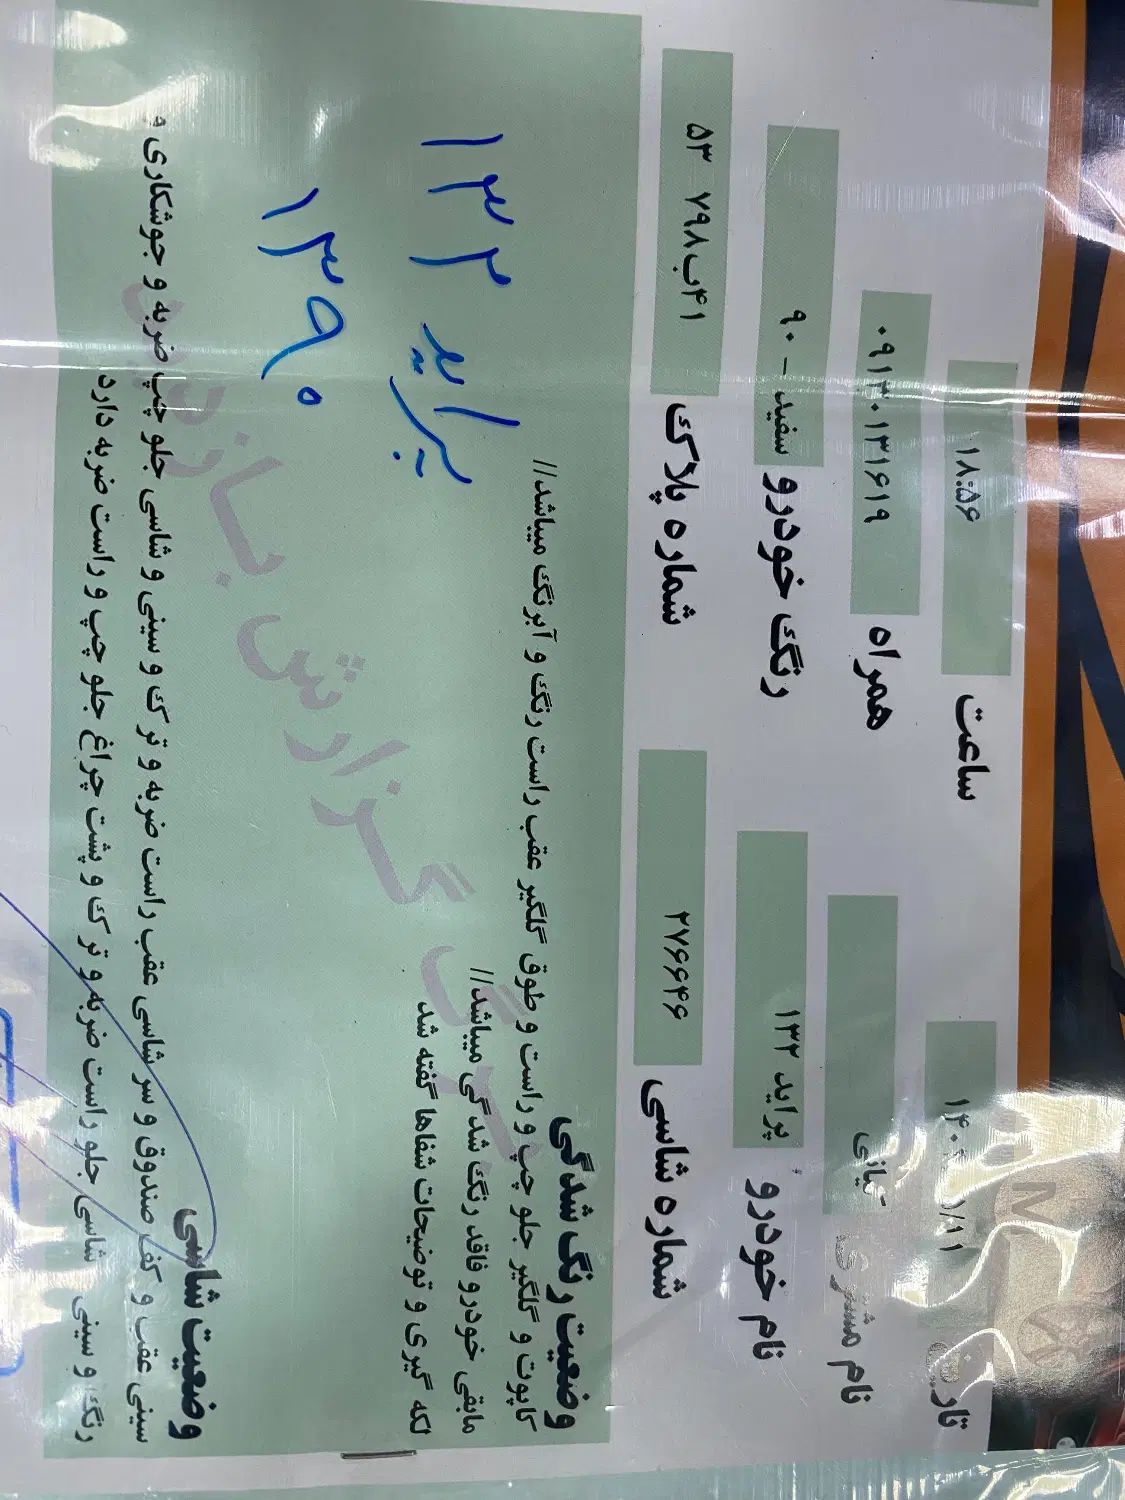 ساعت ۱۸:۵۶
همراه ۰۹۱۳۰۱۳۱۶۱۹ نام مشتری کیانی
نام خودرو پراید ۱۳۲ رنگ خودرو سفید - ۹۰
شماره شاسی ۲۷۶۶۴۶ شماره پلاک ۴۱ب۷۹۸ ۵۳
وضعیت رنگ شدگی
کاپوت و گلگیر جلو چپ و راست و طوق گلگیر عقب راست رنگ و آبرنگ میباشد//
مابقی خودرو فاقد رنگ شدگی میباشد//
لکه گیری و توضیحات شفاها گفته شد
پراید ۱۳۲
۱۳۹۰
برگ گزارش
وضعیت شاسی
سینی عقب و کف صندوق و سر شاسی عقب راست ضربه و ترک و سینی و شاسی جلو چپ ضربه و جوشکاری
رنگ و سینی شاسی جلو راست ضربه و ترک و پشت چراغ جلو چپ و راست ضربه دارد